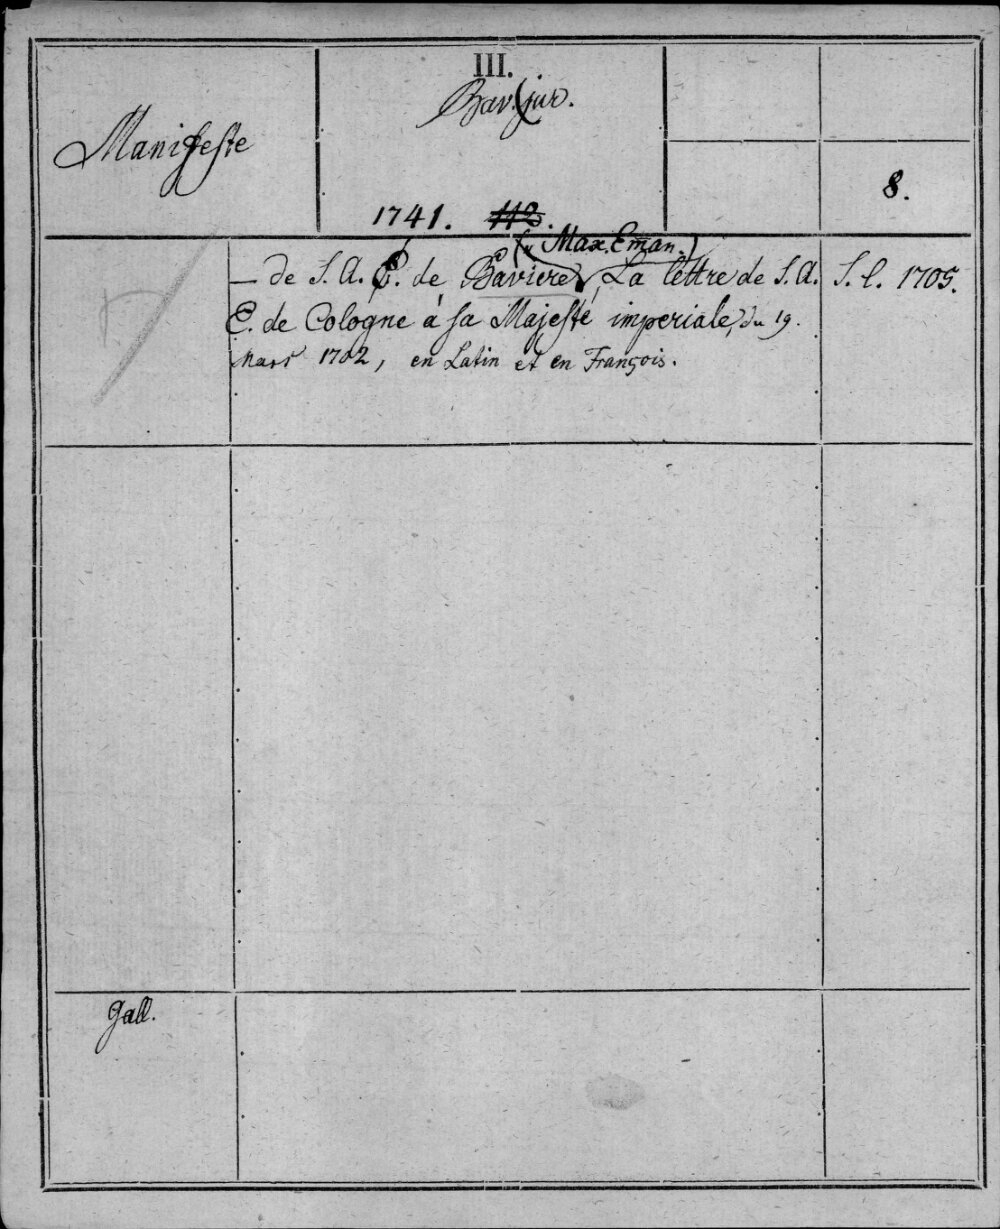 III.
Bav. jur.
Manifeste
8.
1741. 112.
Max. Eman.)
— de S. A. E. de Baviere, La lettre de S. A. S. l. 1705.
E. de Cologne à sa Majesté imperiale, du 19.
Mars 1702, en Latin et en François.
Gall.